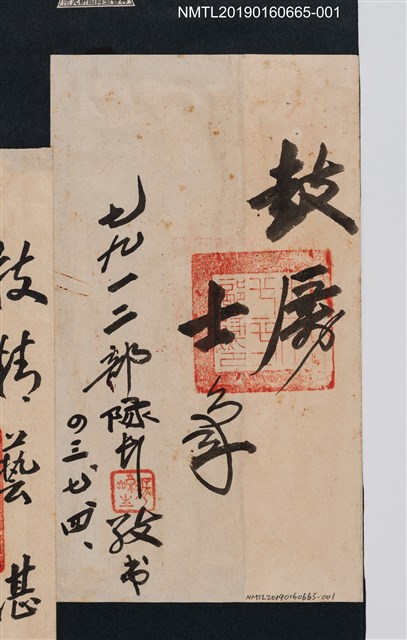 NMTL20190160665-001
鼓
厲
士氣
七九一二部隊
敬書
四三、七、四、
技精藝湛
NMTL20190160665-001